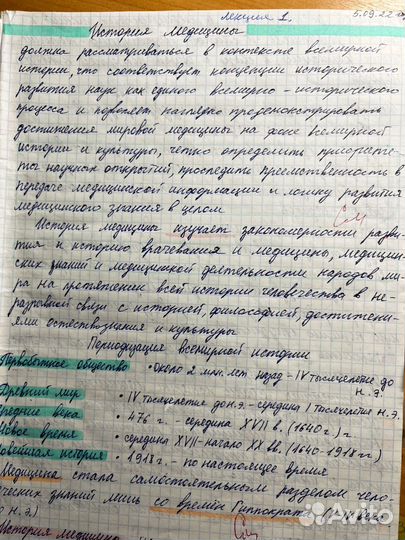 Лекция 1.
5.09.22
История медицины
должна рассматриваться в контексте всемирной
истории, что соответствует концепции исторического
развития наук как единого всемирно-исторического
процесса и позволяет наглядно продемонстрировать
достижения мировой медицины на фоне всемирной
истории и культуры, четко определить приоритеты
ты научных открытий, проследить преемственность в
передаче медицинской информации и логику развития
медицинского знания в целом
См
История медицины изучает закономерности разви-
тия и историю врачевания и медицины, медицин-
ских знаний и медицинской деятельности народов ми-
ра на протяжении всей истории человечества в не-
разрывной связи с историей, философией, достижени-
ями естествознания и культуры
Периодизация всемирной истории
Первобытное общество • около 2 млн. лет назад - IV тысячелетие до
н.э.
Древний мир • IV тысячелетие до н.э. - середина I тысячелетия н.э.
Средние века • 476 г. - середина XVII в. (1640 г.)
Новое время • середина XVII - начало XX вв. (1640-1918 гг.)
Новейшая история • 1918 г. - по настоящее время
Медицина стала самостоятельным разделом чело-
ческих знаний лишь со времён Гиппократа
о н.э.)
См
История медицины
Avito